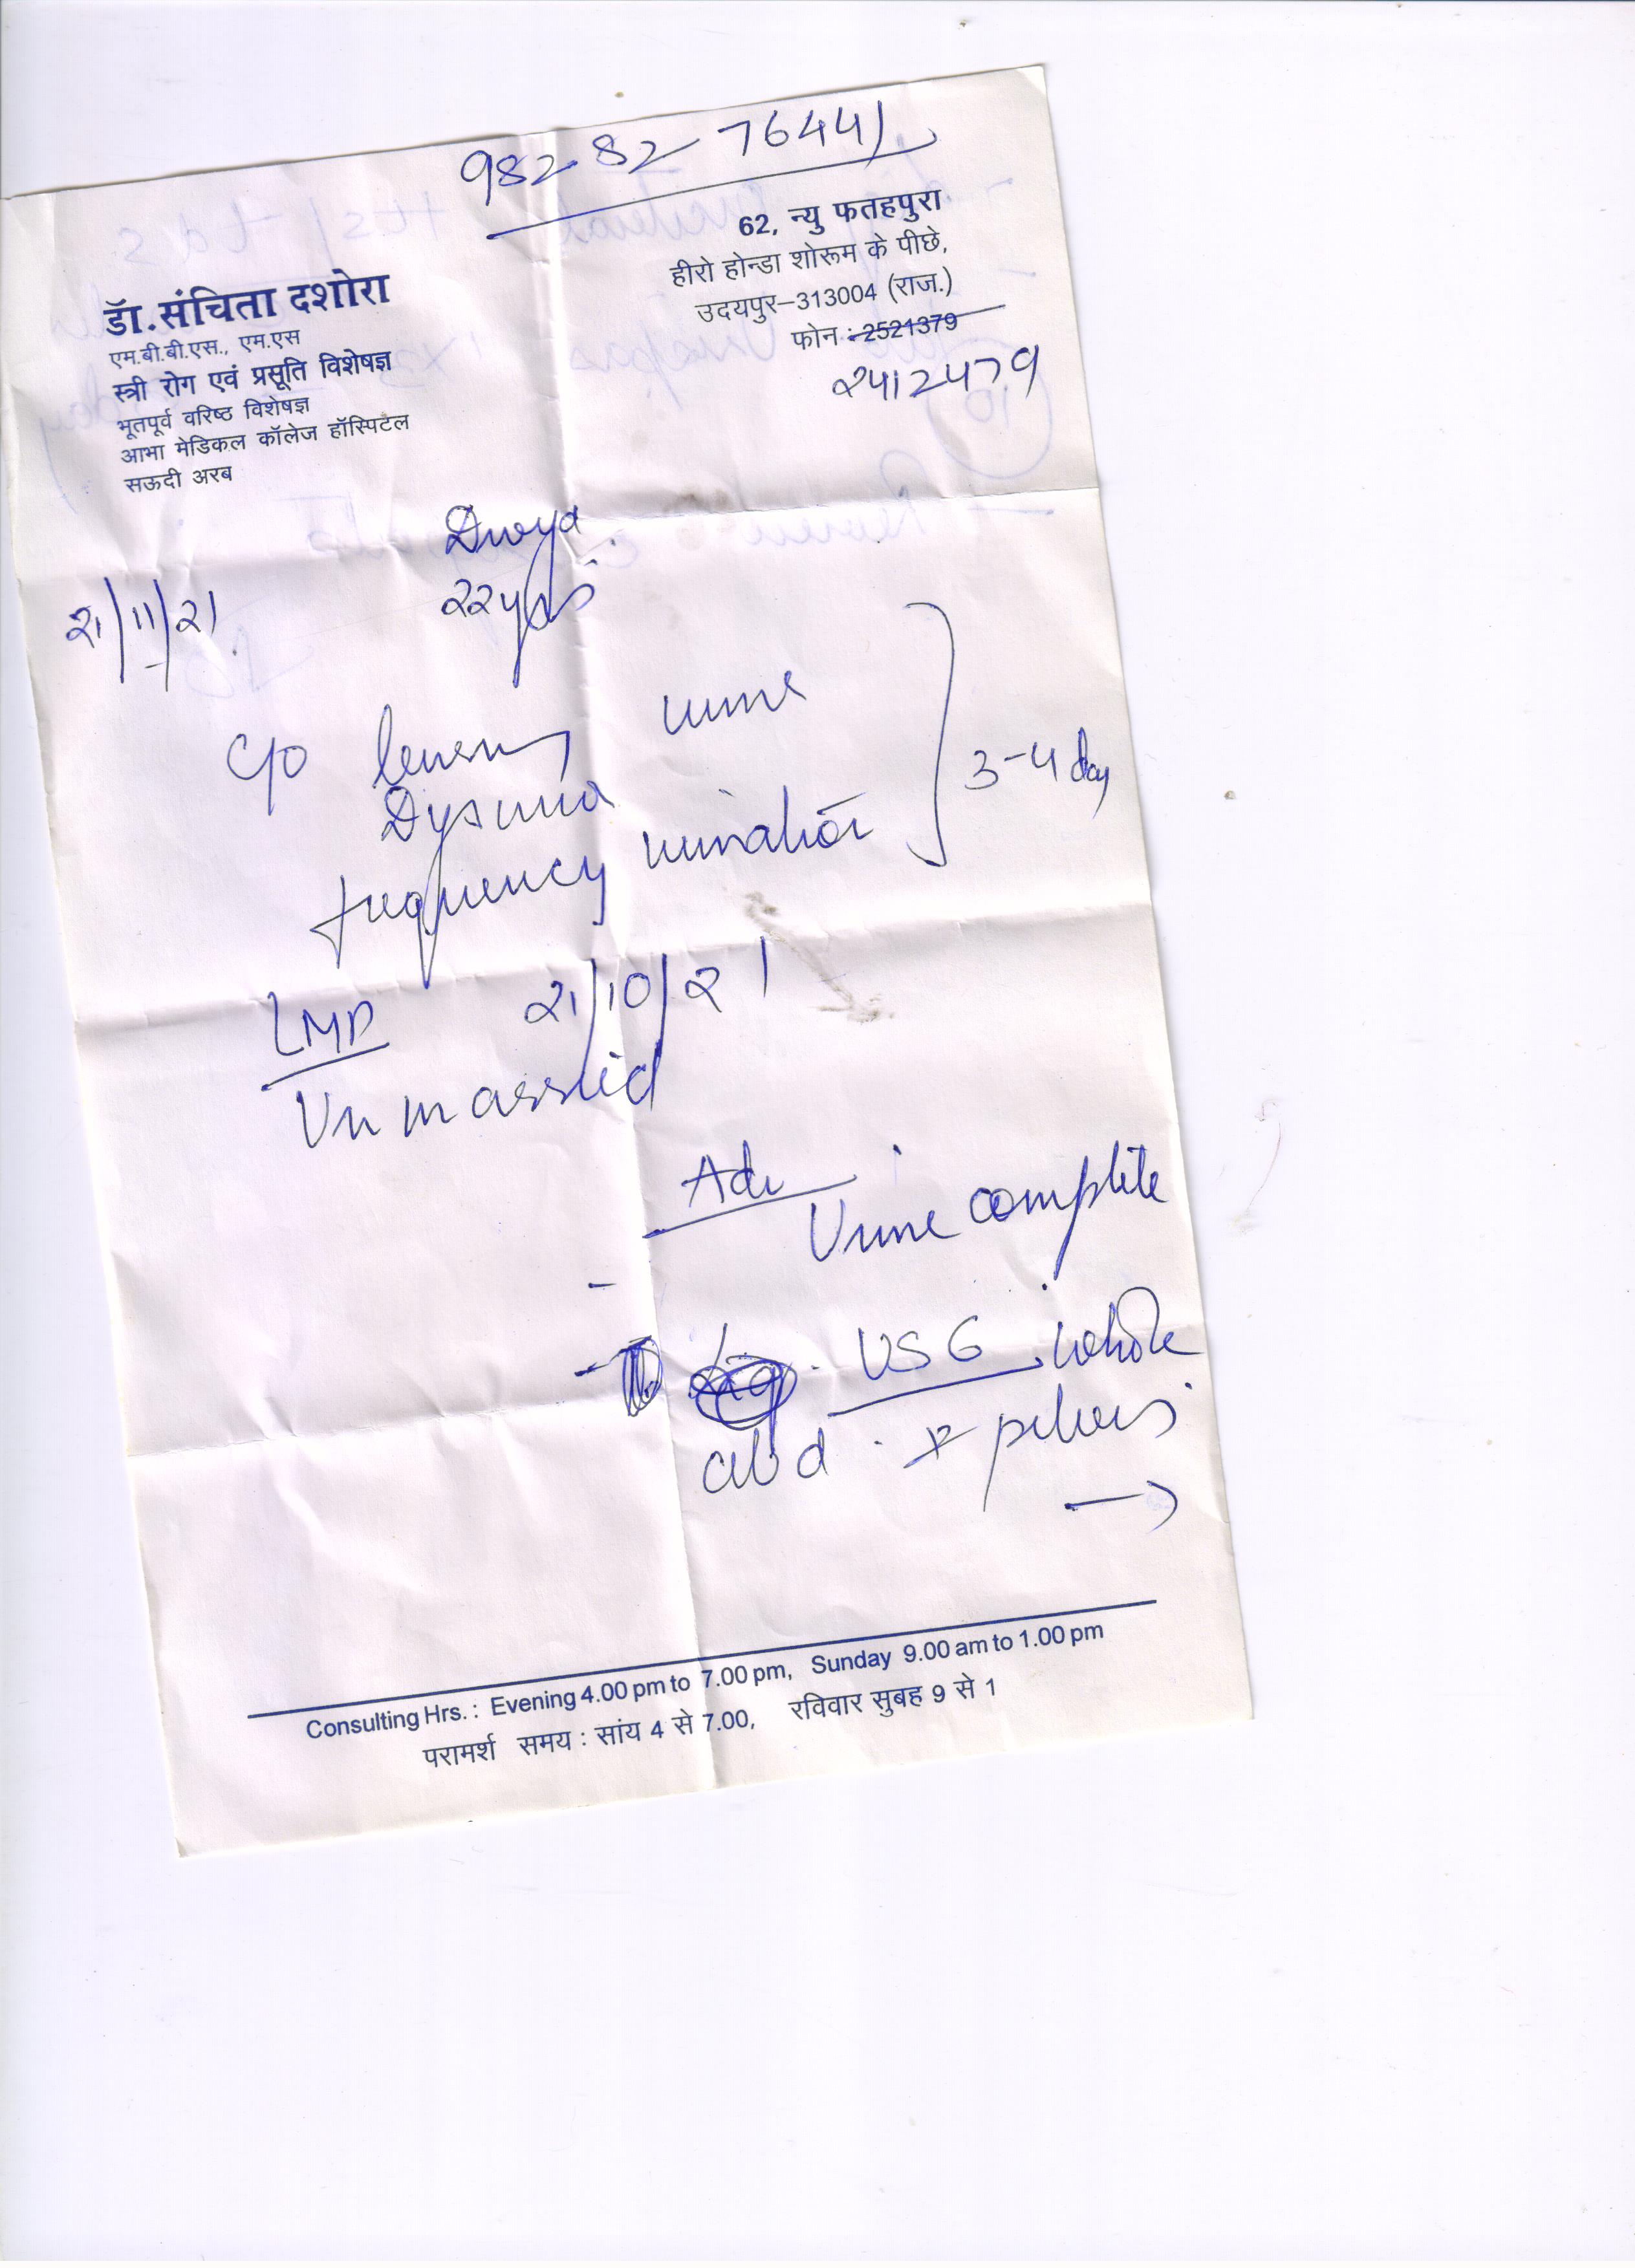 982 82 76441
डॉ. संचिता दशोरा
एम.बी.बी.एस., एम.एस
स्त्री रोग एवं प्रसूति विशेषज्ञ
भूतपूर्व वरिष्ठ विशेषज्ञ
आभा मेडिकल कॉलेज हॉस्पिटल
सऊदी अरब
62, न्यु फतहपुरा
हीरो होन्डा शोरूम के पीछे,
उदयपुर-313004 (राज.)
फोन : 2521379
2412479
21/11/21
22 yrs
c/o urine
Dysuria
frequency urination
3-4 day
LMP 21/10/21
Unmarried
Adv
Urine complete
- USG whole
abd. + pelvis
→
Consulting Hrs. : Evening 4.00 pm to 7.00 pm, Sunday 9.00 am to 1.00 pm
परामर्श समय : सांय 4 से 7.00, रविवार सुबह 9 से 1